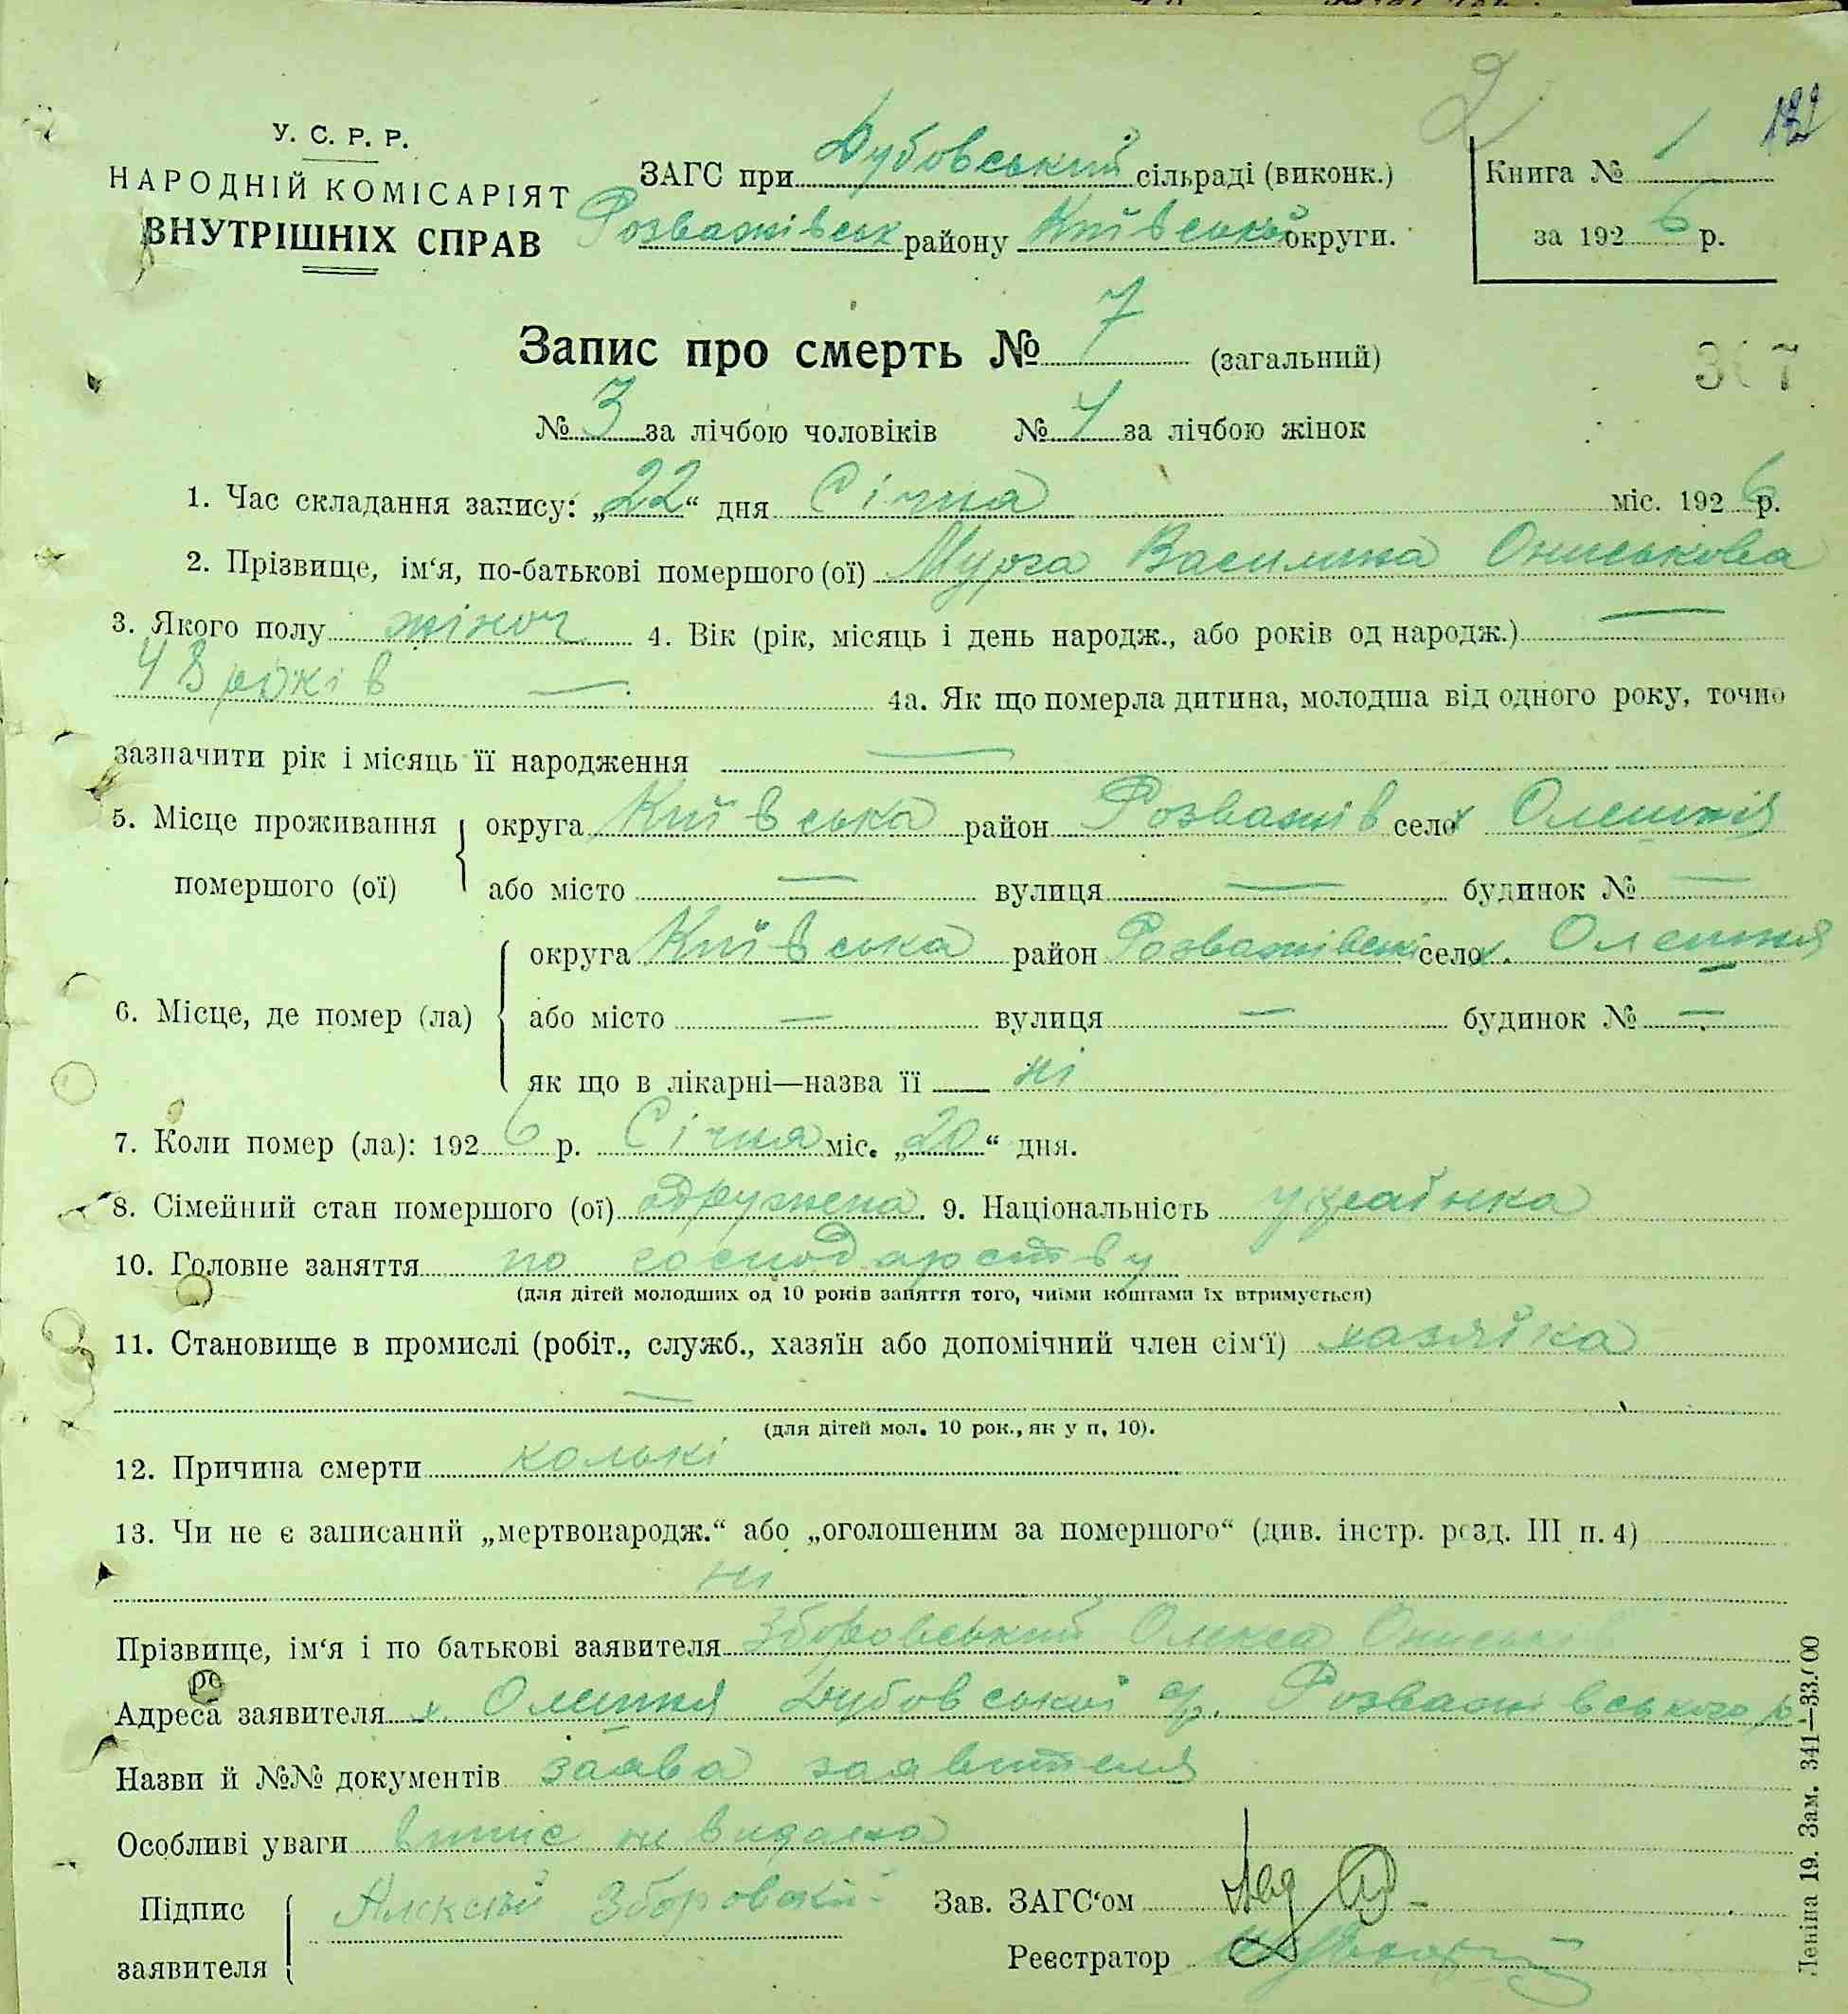 2
122
У. С. Р. Р.
НАРОДНІЙ КОМІСАРІЯТ
ВНУТРІШНІХ СПРАВ
ЗАГС при Дубовський сільраді (виконк.)
Розважівськ району Київської округи.
Книга № 1
за 1926 р.
Запис про смерть № 7 (загальний)
307
№ 3 за лічбою чоловіків № 4 за лічбою жінок
1. Час складання запису: „22“ дня Січня міс. 1926 р.
2. Прізвище, ім‘я, по-батькові помершого (ої) Мурга Василина Ониськова
3. Якого полу жіноч 4. Вік (рік, місяць і день народж., або років од народж.) —
48 років — 4а. Як що померла дитина, молодша від одного року, точно
зазначити рік і місяць її народження —
5. Місце проживання помершого (ої)
округа Київська район Розважів село х Олешня
або місто — вулиця — будинок № —
6. Місце, де помер (ла)
округа Київська район Розважівськ село х. Олешня
або місто — вулиця — будинок № —
як що в лікарні—назва її — ні
7. Коли помер (ла): 1926 р. Січня міс. „20“ дня.
8. Сімейний стан помершого (ої) одружена. 9. Національність українка
10. Головне заняття по господарству
(для дітей молодших од 10 років заняття того, чиїми коштами їх втримується)
11. Становище в промислі (робіт., служб., хазяїн або допомічний член сім‘ї) хазяйка
—
(для дітей мол. 10 рок., як у п. 10).
12. Причина смерти колькі
13. Чи не є записаний „мертвонародж.“ або „оголошеним за помершого“ (див. інстр. розд. III п. 4)
ні
Прізвище, ім‘я і по батькові заявителя Зборовський Олекса Ониськів
Адреса заявителя х. Олешня Дубовської с/р. Розважівського р.
Назви й №№ документів заява заявителя
Особливі уваги випис не видано
Підпис заявителя
Алексей Зборовский
Зав. ЗАГС‘ом
Реєстратор
Леніна 19. Зам. 341—33.000